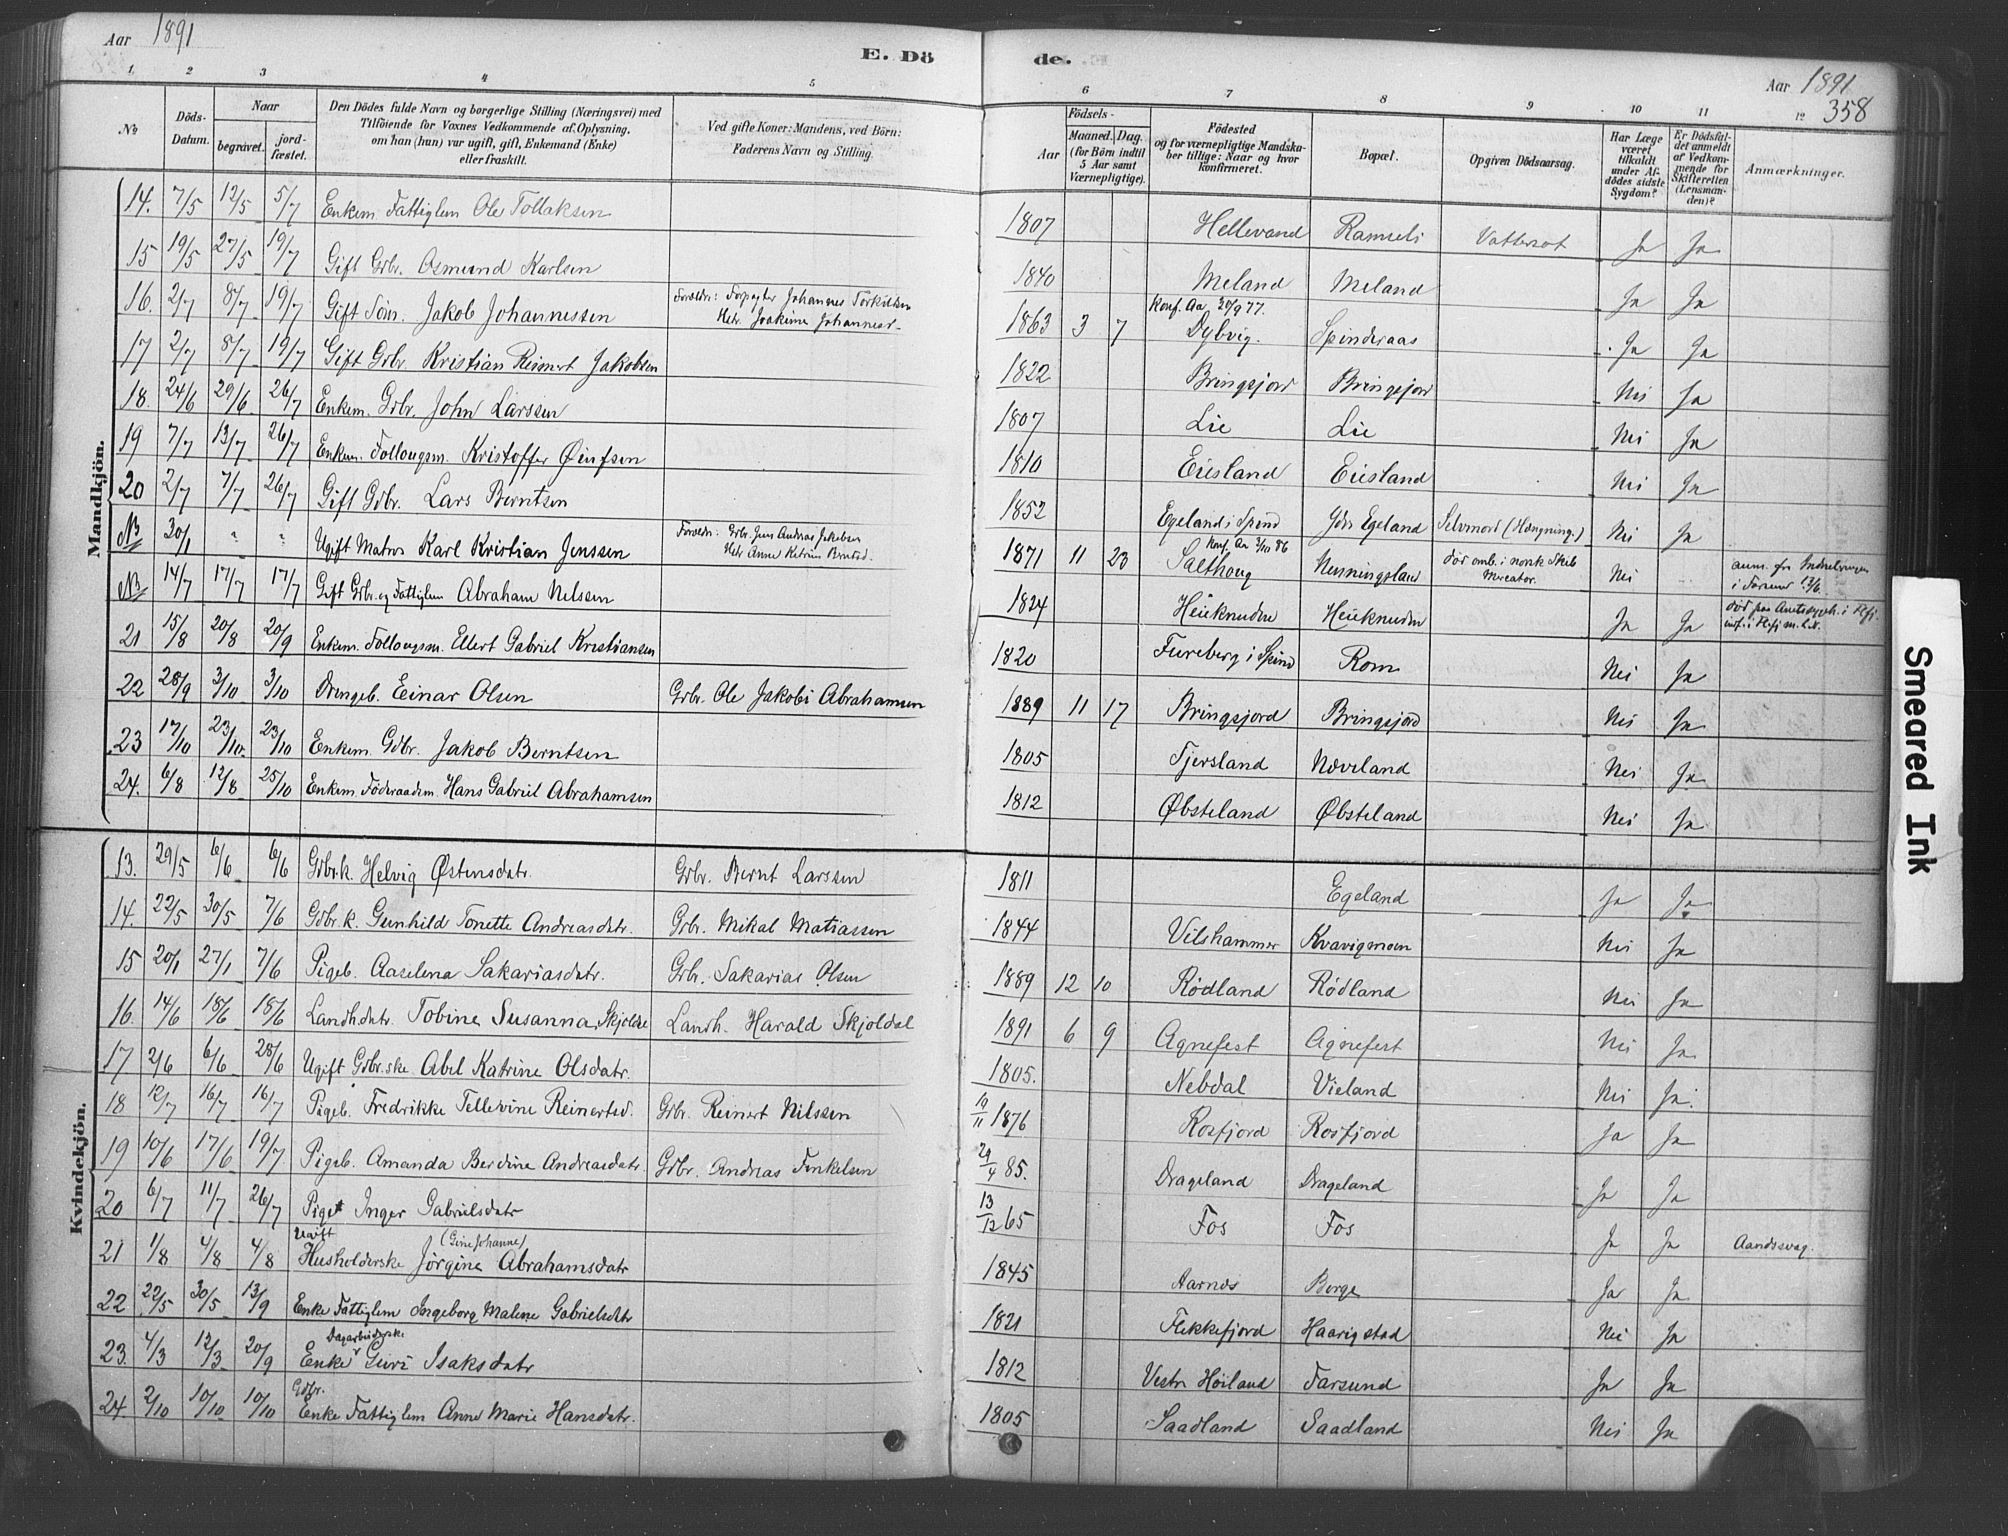 Aar 1891
E. Dö
de.
Aar 1891
358
1. 2 3 4 5 6 7 8 9 10 11 12
No
Döds-Datum.
Naar
begravet.
jord-fæstet.
Den Dödes fulde Navn og borgerlige Stilling (Næringsvei) med
Tilföiende for Voxnes Vedkommende af Oplysning,
om han (hun) var ugift, gift, Enkemand (Enke)
eller fraskilt.
Ved gifte Koner: Mandens, ved Börn:
Faderens Navn og Stilling.
Födsels-
Aar
Maaned. Dag.
(for Börn indtil
5 Aar samt
Værnepligtige).
Födested
og for værnepligtige Mandska-
ber tillige: Naar og hvor
konfirmeret.
Bopæl.
Opgiven Dödsaarsag.
Har Læge
været
tilkaldt
under Af-
dödes sidste
Sygdom?
Er Dödsfal-
det anmeldt
af Vedkom-
mende for
Skifteretten
(Lensman-
den)?
Anmærkninger.
Mandkjön.
14. 7/5 12/5 5/7 Enkem. Fattiglem Ole Tollaksen 1807 Hellevand Ramseli Vattersot Ja Ja
15 19/5 27/5 19/7 Gift Gbr. Osmund Karlsen 1840 Meland Meland Ja Ja
16. 2/7 8/7 19/7 Gift Söm. Jakob Johannessen Forældre: Forpagter Johannes Torkildsen
Hstr. Joakime Johannesd. 1863 3 7 Konf. Aa. 30/9 77. Dybvig. Spinderaas Ja Ja
17 2/7 8/7 19/7 Gift Gbr. Kristian Reinert Jakobsen 1822 Bringsjord Bringsjord Nei Ja
18. 24/6 29/6 26/7 Enkem. Gbr. John Larssen 1807 Lie Lie Nei Ja
19 7/7 13/7 26/7 Enkem. Follougsm. Kristoffer Öinfsen 1810 Eiesland Eiesland Nei Ja
20 2/7 7/7 26/7 Gift Gdbr. Lars Berntsen 1852 Egeland i Spind Ydre Egeland Selvmord (Hængning.) Nei Ja
NB 30/1 " " Ugift Matros Karl Kristian Jenssen Forældre: Gbr. Jens Andreas Jakobsen
Hstr. Anne Katrine Berntsd. 1871 11 23 Konf. Aa 3/10 86 Salthoug Henningsland död omb. i norsk Skib
Mercator. Nei anm. fra Indrulleringen
i Farsund 13/6.
NB 14/7 17/7 17/7 Gift Gbr. og Fattiglem Abraham Nilssen 1824 Heieknuden Heieknuden Ja Ja död paa Amtssygeh. i Flfj.
21 15/8 20/8 20/9 Enkem. Follougsm. Ellert Gabriel Kristiansen 1820 Fureberg i Spind Rom Nei Ja
22 28/9 3/10 3/10 Drengeb. Einar Olsen Gbr. Ole Jakobi Abrahamsen 1889 11 17 Bringsjord Bringsjord Nei Ja
23 17/10 23/10. 23/10 Enkem. Gdbr. Jakob Berntsen 1805 Tjersland Næveland Nei Ja
24. 6/8 12/8 25/10 Enkem. Föderaadsm. Hans Gabriel Abrahamsen 1812 Øbsteland Øbsteland Nei Ja
Kvindekjön.
13. 29/5 6/6 6/6 Gdbr.k. Helvig Østensdatr. Gbr. Bernt Larssen 1811 Egeland Ja Ja
14. 22/5 30/5 7/6 Gdbr.k. Gunhild Tonette Andreasdatr. Gbr. Mikal Matiassen 1844 Vilshammer Kvavigmoen Nei Ja
15 20/1 27/1 7/6 Pigeb. Aaselena Sakariasdatr. Gbr. Sakarias Olsen 1889 12 10 Rödland Rödland Nei Ja
16. 14/6 18/6 18/6 Landh.datr. Tobine Susanna Skjoldal Landh. Harald Skjoldal 1891 6 9 Agnefest Agnefest Nei Ja
17 2/6 6/6 28/6 Ugift Gdbr.ske. Abel Katrine Olsdatr. 1805. Nebdal Vieland Nei Ja.
18 12/7 16/7 16/7 Pigeb. Fredrikke Tellevine Reinertsd. Gbr. Reinert Nilssen 19/11 1876 Rosfjord Rosfjord Ja Ja
19 10/6 17/6 19/7 Pigeb. Amanda Berdine Andreasdatr. Gbr. Andreas Finkelsen 29/4 85. Drageland Drageland Ja Ja
20 6/7 11/7 26/7 Piget Inger Gabrielsdatr 13/12 65 Fos Fos Ja Ja Aandssvag.
21 1/8 4/8 4/8 Ugift Husholderske Jörgine (Gine Johanne) Abrahamsdatr 1845 Aarnes Borge Ja Ja
22 22/5 30/5 13/9 Enke Fattiglem Ingeborg Malene Gabrielsdatr 1821 Flekkefjord Haarigstad Nei Ja
23. 4/3 12/3 20/9 Enke Dagarbeiderske Guri Isaksdatr 1812 Vestre Höiland Farsund Ja Ja
24. 2/10 10/10 10/10 Gdbr. Enke Fattiglem Anne Marie Hansdatr. 1805 Saadland Saadland Nei Ja
Smeared Ink